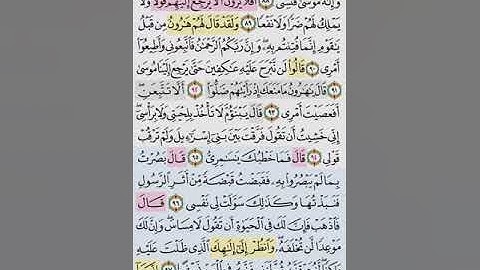 وَإِلَٰهُ مُوسَىٰ فَنَسِيَ ٨٨ أَفَلَا يَرَوْنَ أَلَّا يَرْجِعُ إِلَيْهِمْ قَوْلًا وَلَا
يَمْلِكُ لَهُمْ ضَرًّا وَلَا نَفْعًا ٨٩ وَلَقَدْ قَالَ لَهُمْ هَٰرُونُ مِن قَبْلُ
يَٰقَوْمِ إِنَّمَا فُتِنتُم بِهِۦ وَإِنَّ رَبَّكُمُ ٱلرَّحْمَٰنُ فَٱتَّبِعُونِي وَأَطِيعُوٓا۟
أَمْرِي ٩٠ قَالُوا۟ لَن نَّبْرَحَ عَلَيْهِ عَٰكِفِينَ حَتَّىٰ يَرْجِعَ إِلَيْنَا مُوسَىٰ
٩١ قَالَ يَٰهَٰرُونُ مَا مَنَعَكَ إِذْ رَأَيْتَهُمْ ضَلُّوٓا۟ ٩٢ أَلَّا تَتَّبِعَنِ
أَفَعَصَيْتَ أَمْرِي ٩٣ قَالَ يَبْنَؤُمَّ لَا تَأْخُذْ بِلِحْيَتِي وَلَا بِرَأْسِيٓ
إِنِّي خَشِيتُ أَن تَقُولَ فَرَّقْتَ بَيْنَ بَنِيٓ إِسْرَٰٓءِيلَ وَلَمْ تَرْقُبْ
قَوْلِي ٩٤ قَالَ فَمَا خَطْبُكَ يَٰسَٰمِرِيُّ ٩٥ قَالَ بَصُرْتُ
بِمَا لَمْ يَبْصُرُوا۟ بِهِۦ فَقَبَضْتُ قَبْضَةً مِّنْ أَثَرِ ٱلرَّسُولِ
فَنَبَذْتُهَا وَكَذَٰلِكَ سَوَّلَتْ لِي نَفْسِي ٩٦ قَالَ
فَٱذْهَبْ فَإِنَّ لَكَ فِي ٱلْحَيَوٰةِ أَن تَقُولَ لَا مِسَاسَ وَإِنَّ لَكَ
مَوْعِدًا لَّن تُخْلَفَهُۥ وَٱنظُرْ إِلَىٰٓ إِلَٰهِكَ ٱلَّذِي ظَلْتَ عَلَيْهِ